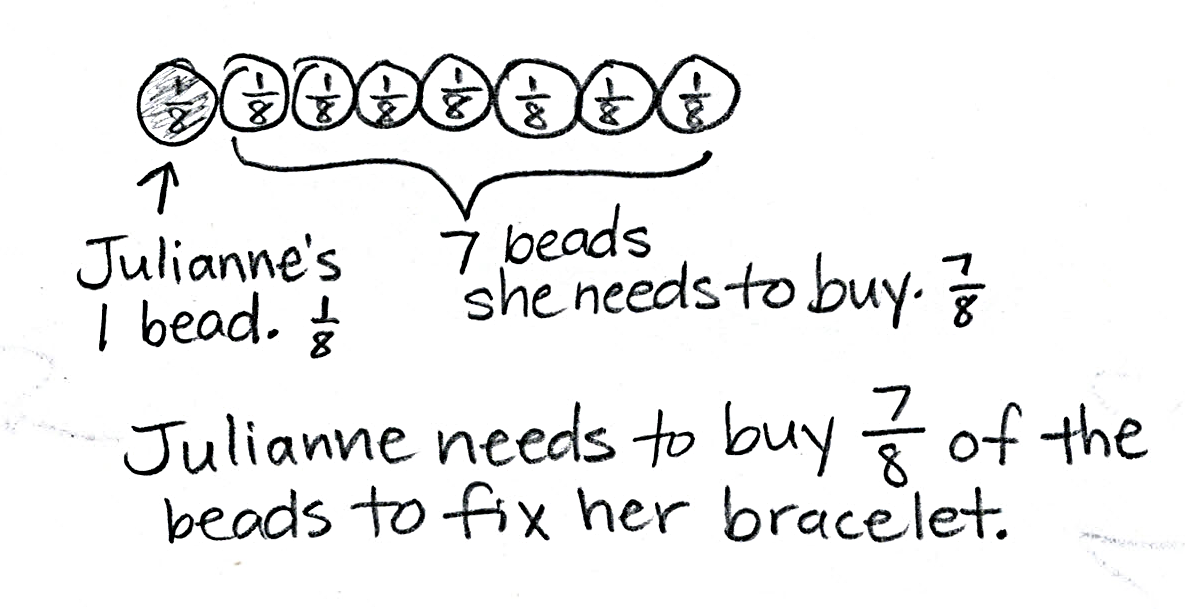 1/8 1/8 1/8 1/8 1/8 1/8 1/8 1/8
Julianne's
1 bead. 1/8
7 beads
she needs to buy. 7/8
Julianne needs to buy 7/8 of the
beads to fix her bracelet.